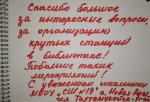 Спасибо большое
за интересные вопросы,
за организацию
крутых станций
в библиотеке!
Побольше таких
мероприятий!
С уважением школьники
МБОУ "СШ №19"